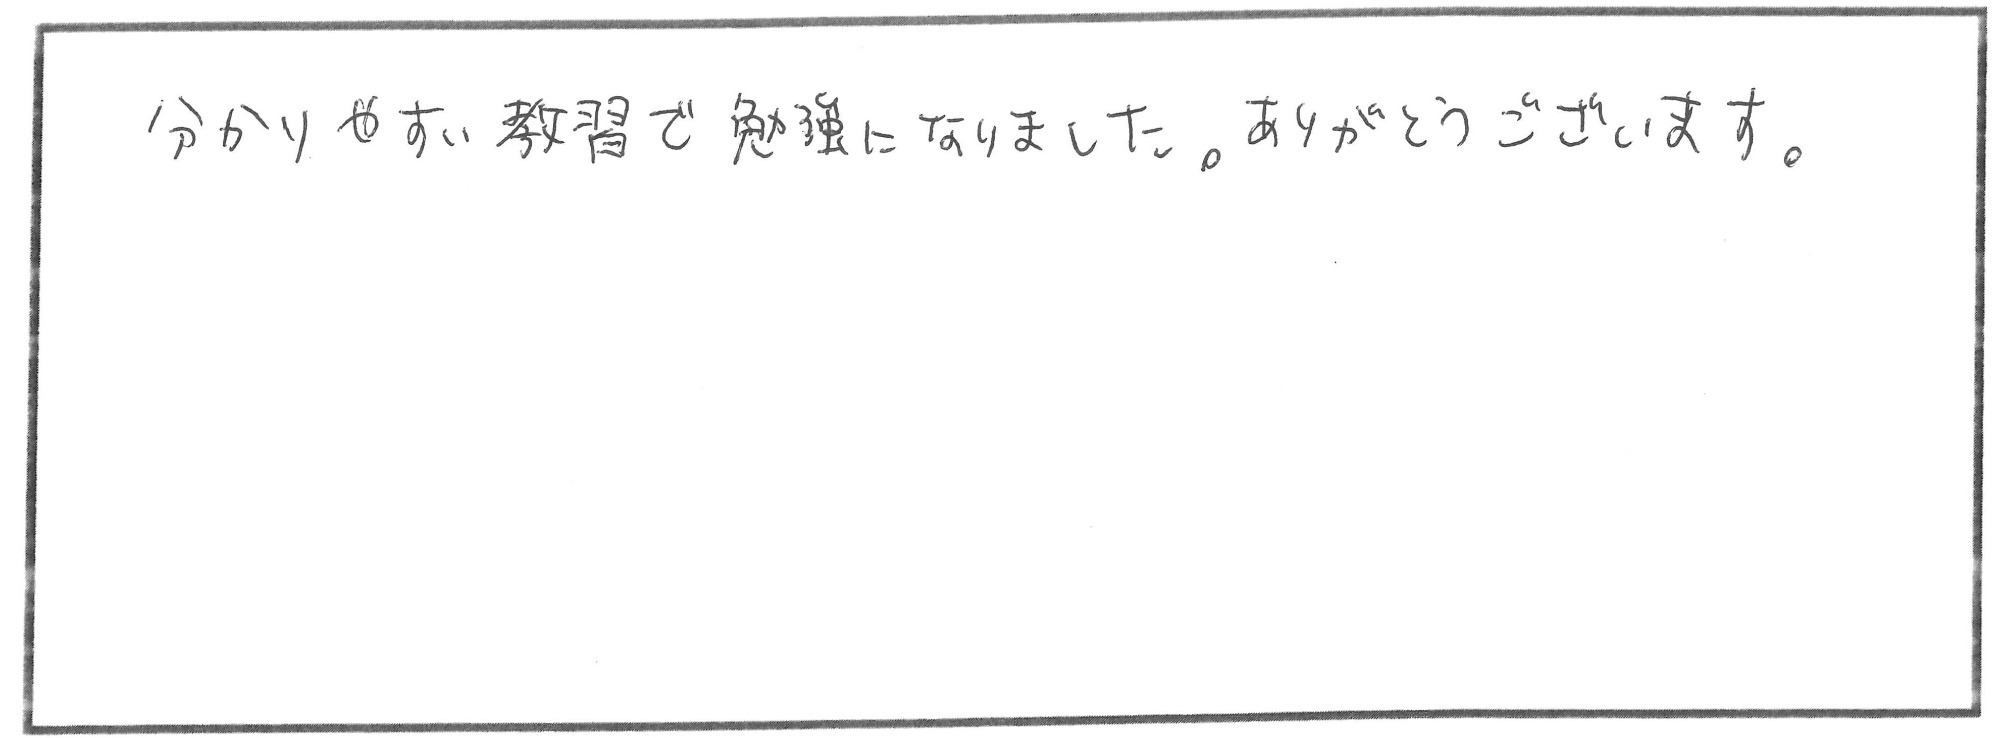 分かりやすい教習で勉強になりました。ありがとうございます。